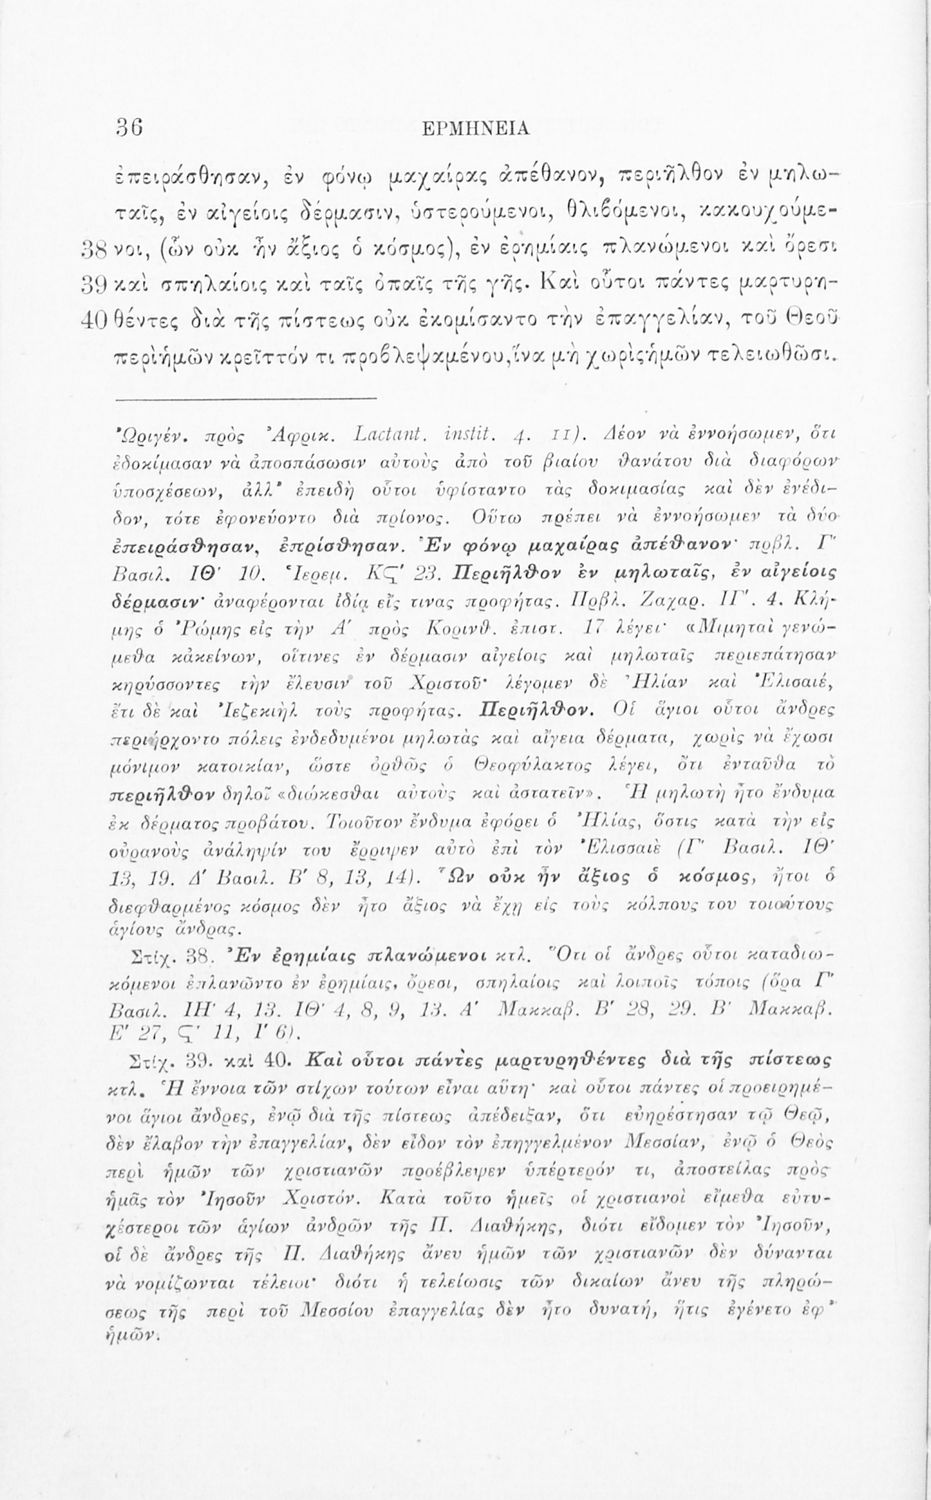 36 ΕΡΜΗΝΕΙΑ
ἐπειράσθησαν, ἐν φόνῳ μαχαίρας ἀπέθανον, περιῆλθον ἐν μηλω-
ταῖς, ἐν αἰγείοις δέρμασιν, ὑστερούμενοι, θλιβόμενοι, κακουχούμε-
38 νοι, (ὧν οὐκ ἦν ἄξιος ὁ κόσμος), ἐν ἐρημίαις πλανώμενοι καὶ ὄρεσι
39 καὶ σπηλαίοις καὶ ταῖς ὀπαῖς τῆς γῆς. Καὶ οὗτοι πάντες μαρτυρη-
40 θέντες διὰ τῆς πίστεως οὐκ ἐκομίσαντο τὴν ἐπαγγελίαν, τοῦ Θεοῦ
περὶ ἡμῶν κρεῖττόν τι προβλεψαμένου, ἵνα μὴ χωρὶς ἡμῶν τελειωθῶσι.
Ὠριγέν. πρὸς Ἀφρικ. Lactant. instit. 4. 11). Δέον νὰ ἐννοήσωμεν, ὅτι
ἐδοκίμασαν νὰ ἀποσπάσωσιν αὐτοὺς ἀπὸ τοῦ βιαίου θανάτου διὰ διαφόρων
ὑποσχέσεων, ἀλλ' ἐπειδὴ οὗτοι ὑφίσταντο τὰς δοκιμασίας καὶ δὲν ἐνέδι-
δον, τότε ἐφονεύοντο διὰ πρίονος. Οὕτω πρέπει νὰ ἐννοήσωμεν τὰ δύο
ἐπειράσθησαν, ἐπρίσθησαν. Ἐν φόνῳ μαχαίρας ἀπέθανον· πρβλ. Γ'
Βασιλ. ΙΘ' 10. Ἱερεμ. ΚϚ' 23. Περιῆλθον ἐν μηλωταῖς, ἐν αἰγείοις
δέρμασιν· ἀναφέρονται ἰδίᾳ εἴς τινας προφήτας. Πρβλ. Ζαχαρ. ΙΓ'. 4. Κλή-
μης ὁ Ῥώμης εἰς τὴν Α' πρὸς Κορινθ. ἐπιστ. 17 λέγει· «Μιμηταὶ γενώ-
μεθα κἀκείνων, οἵτινες ἐν δέρμασιν αἰγείοις καὶ μηλωταῖς περιεπάτησαν
κηρύσσοντες τὴν ἔλευσιν τοῦ Χριστοῦ· λέγομεν δὲ Ἠλίαν καὶ Ἐλισαιέ,
ἔτι δὲ καὶ Ἰεζεκιὴλ τοὺς προφήτας. Περιῆλθον. Οἱ ἅγιοι οὗτοι ἄνδρες
περιήρχοντο πόλεις ἐνδεδυμένοι μηλωτὰς καὶ αἴγεια δέρματα, χωρὶς νὰ ἔχωσι
μόνιμον κατοικίαν, ὥστε ὀρθῶς ὁ Θεοφύλακτος λέγει, ὅτι ἐνταῦθα τὸ
περιῆλθον δηλοῖ «διώκεσθαι αὐτοὺς καὶ ἀστατεῖν». Ἡ μηλωτὴ ἦτο ἔνδυμα
ἐκ δέρματος προβάτου. Τοιοῦτον ἔνδυμα ἐφόρει ὁ Ἠλίας, ὅστις κατὰ τὴν εἰς
οὐρανοὺς ἀνάληψίν του ἔρριψεν αὐτὸ ἐπὶ τὸν Ἐλισσαιὲ (Γ' Βασιλ. ΙΘ'
13, 19. Δ' Βασιλ. Β' 8, 13, 14). Ὧν οὐκ ἦν ἄξιος ὁ κόσμος, ἤτοι ὁ
διεφθαρμένος κόσμος δὲν ἦτο ἄξιος νὰ ἔχῃ εἰς τοὺς κόλπους του τοιούτους
ἁγίους ἄνδρας.
Στίχ. 38. Ἐν ἐρημίαις πλανώμενοι κτλ. Ὅτι οἱ ἄνδρες οὗτοι καταδιω-
κόμενοι ἐπλανῶντο ἐν ἐρημίαις, ὄρεσι, σπηλαίοις καὶ λοιποῖς τόποις (ὅρα Γ'
Βασιλ. ΙΗ' 4, 13. ΙΘ' 4, 8, 9, 13. Α' Μακκαβ. Β' 28, 29. Β' Μακκαβ.
Ε' 27, Ϛ' 11, Ι' 6).
Στίχ. 39. καὶ 40. Καὶ οὗτοι πάντες μαρτυρηθέντες διὰ τῆς πίστεως
κτλ. Ἡ ἔννοια τῶν στίχων τούτων εἶναι αὕτη· καὶ οὗτοι πάντες οἱ προειρημέ-
νοι ἅγιοι ἄνδρες, ἐνῷ διὰ τῆς πίστεως ἀπέδειξαν, ὅτι εὐηρέστησαν τῷ Θεῷ,
δὲν ἔλαβον τὴν ἐπαγγελίαν, δὲν εἶδον τὸν ἐπηγγελμένον Μεσσίαν, ἐνῷ ὁ Θεὸς
περὶ ἡμῶν τῶν χριστιανῶν προέβλεψεν ὑπέρτερόν τι, ἀποστείλας πρὸς
ἡμᾶς τὸν Ἰησοῦν Χριστόν. Κατὰ τοῦτο ἡμεῖς οἱ χριστιανοὶ εἴμεθα εὐτυ-
χέστεροι τῶν ἁγίων ἀνδρῶν τῆς Π. Διαθήκης, διότι εἴδομεν τὸν Ἰησοῦν,
οἱ δὲ ἄνδρες τῆς Π. Διαθήκης ἄνευ ἡμῶν τῶν χριστιανῶν δὲν δύνανται
νὰ νομίζωνται τέλειοι· διότι ἡ τελείωσις τῶν δικαίων ἄνευ τῆς πληρώ-
σεως τῆς περὶ τοῦ Μεσσίου ἐπαγγελίας δὲν ἦτο δυνατή, ἥτις ἐγένετο ἐφ'
ἡμῶν.